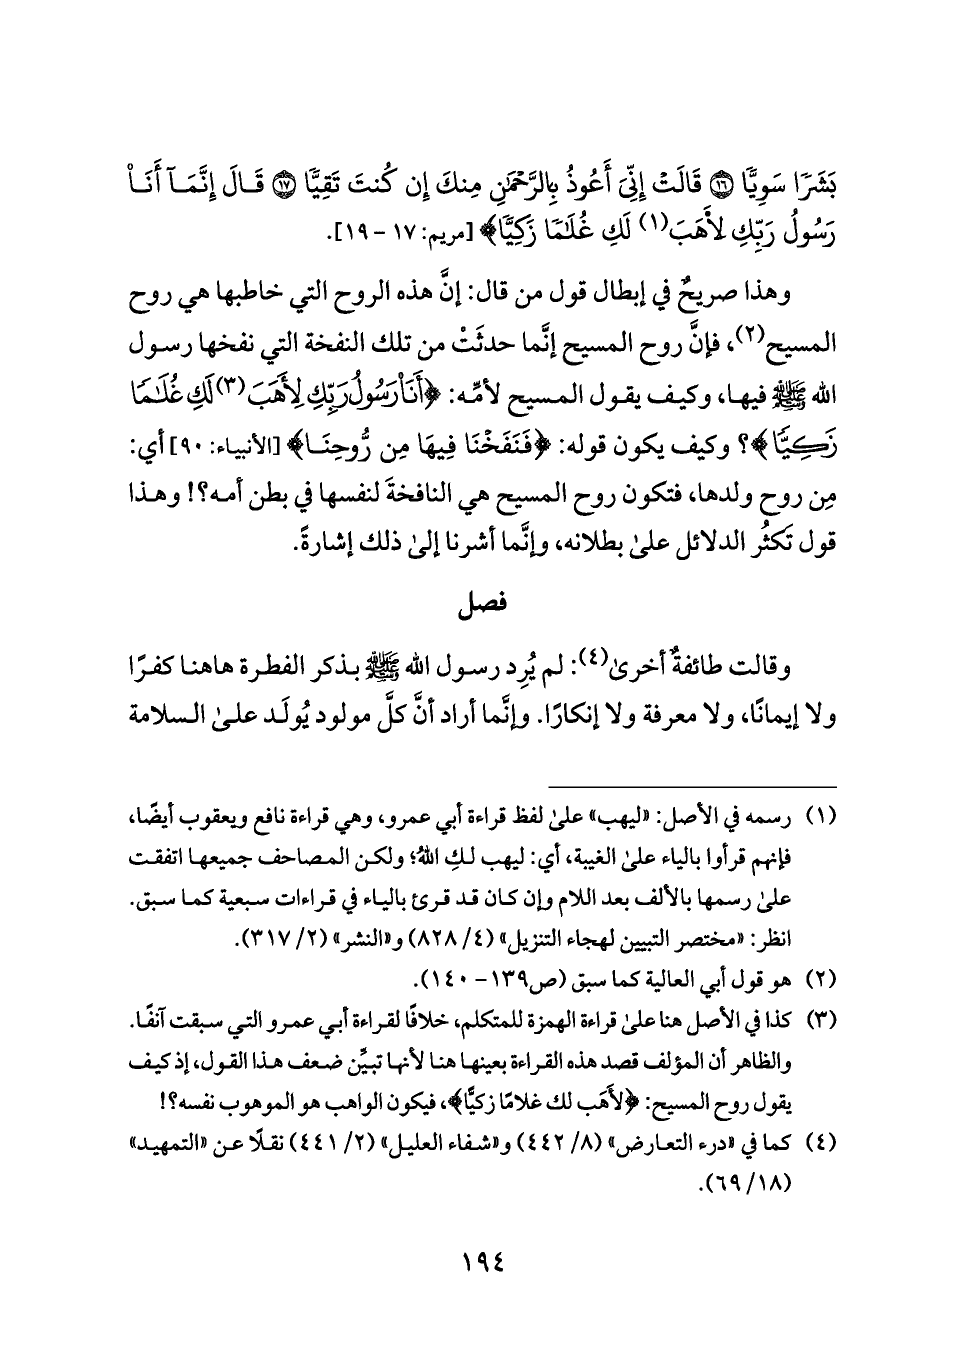 بَشَرٗا سَوِيّٗا ١٦ قَالَتۡ إِنِّيٓ أَعُوذُ بِالرَّحۡمَٰنِ مِنكَ إِن كُنتَ تَقِيّٗا ١٧ قَالَ إِنَّمَآ أَنَا۠
رَسُولُ رَبِّكِ لِأَهَبَ(١) لَكِ غُلَٰمٗا زَكِيّٗا﴾ [مريم: ١٧ - ١٩].
وهذا صريحٌ في إبطال قول من قال: إنَّ هذه الروح التي خاطبها هي روح
المسيح(٢)، فإنَّ روح المسيح إنَّما حدثَتْ من تلك النفخة التي نفخها رسول
الله ﷺ فيها، وكيف يقول المسيح لأمِّه: ﴿أَنَا۠ رَسُولُ رَبِّكِ لِأَهَبَ(٣) لَكِ غُلَٰمٗا
زَكِيّٗا﴾؟ وكيف يكون قوله: ﴿فَنَفَخۡنَا فِيهَا مِن رُّوحِنَا﴾ [الأنبياء: ٩٠] أي:
مِن روح ولدها، فتكون روح المسيح هي النافخةَ لنفسها في بطن أمه؟! وهذا
قول تَكثُر الدلائل علىٰ بطلانه، وإنَّما أشرنا إلىٰ ذلك إشارةً.
فصل
وقالت طائفةٌ أخرىٰ(٤): لم يُرِد رسول الله ﷺ بذكر الفطرة هاهنا كفرًا
ولا إيمانًا، ولا معرفة ولا إنكارًا. وإنَّما أراد أنَّ كلَّ مولود يُولَد علىٰ السلامة
(١) رسمه في الأصل: «ليهب» علىٰ لفظ قراءة أبي عمرو، وهي قراءة نافع ويعقوب أيضًا،
فإنهم قرأوا بالياء علىٰ الغيبة، أي: ليهب لكِ اللهُ؛ ولكن المصاحف جميعها اتفقت
علىٰ رسمها بالألف بعد اللام وإن كان قد قرئ بالياء في قراءات سبعية كما سبق.
انظر: «مختصر التبيين لهجاء التنزيل» (٤/ ٨٢٨) و«النشر» (٢/ ٣١٧).
(٢) هو قول أبي العالية كما سبق (ص١٣٩ - ١٤٠).
(٣) كذا في الأصل هنا علىٰ قراءة الهمزة للمتكلم، خلافًا لقراءة أبي عمرو التي سبقت آنفًا.
والظاهر أن المؤلف قصد هذه القراءة بعينها هنا لأنها تبيِّن ضعف هذا القول، إذ كيف
يقول روح المسيح: ﴿لأَهَب لك غلامًا زكيًّا﴾، فيكون الواهب هو الموهوب نفسه؟!
(٤) كما في «درء التعارض» (٨/ ٤٤٢) و«شفاء العليل» (٢/ ٤٤١) نقلًا عن «التمهيد»
(١٨/ ٦٩).
١٩٤